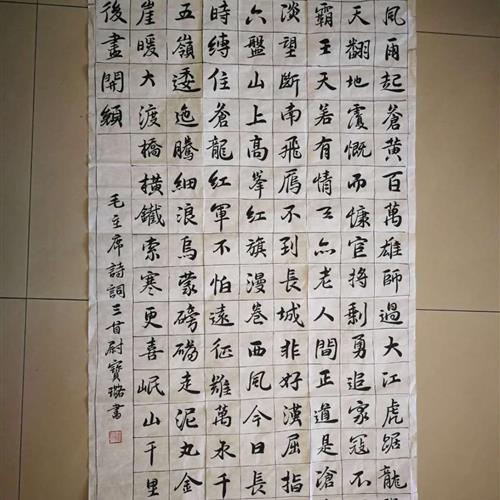 風雨起蒼黃百萬雄師過大江虎踞龍
天翻地覆慨而慷宜將剩勇追窮寇不
霸王天若有情天亦老人間正道是滄
淡望斷南飛雁不到長城非好漢屈指
六盤山上高峯紅旗漫卷西風今日長
時縛住蒼龍紅軍不怕遠征難萬水千
五嶺逶迤騰細浪烏蒙磅礴走泥丸金
崖暖大渡橋橫鐵索寒更喜岷山千里
後盡開顏
毛主席詩詞三首尉寶璐書